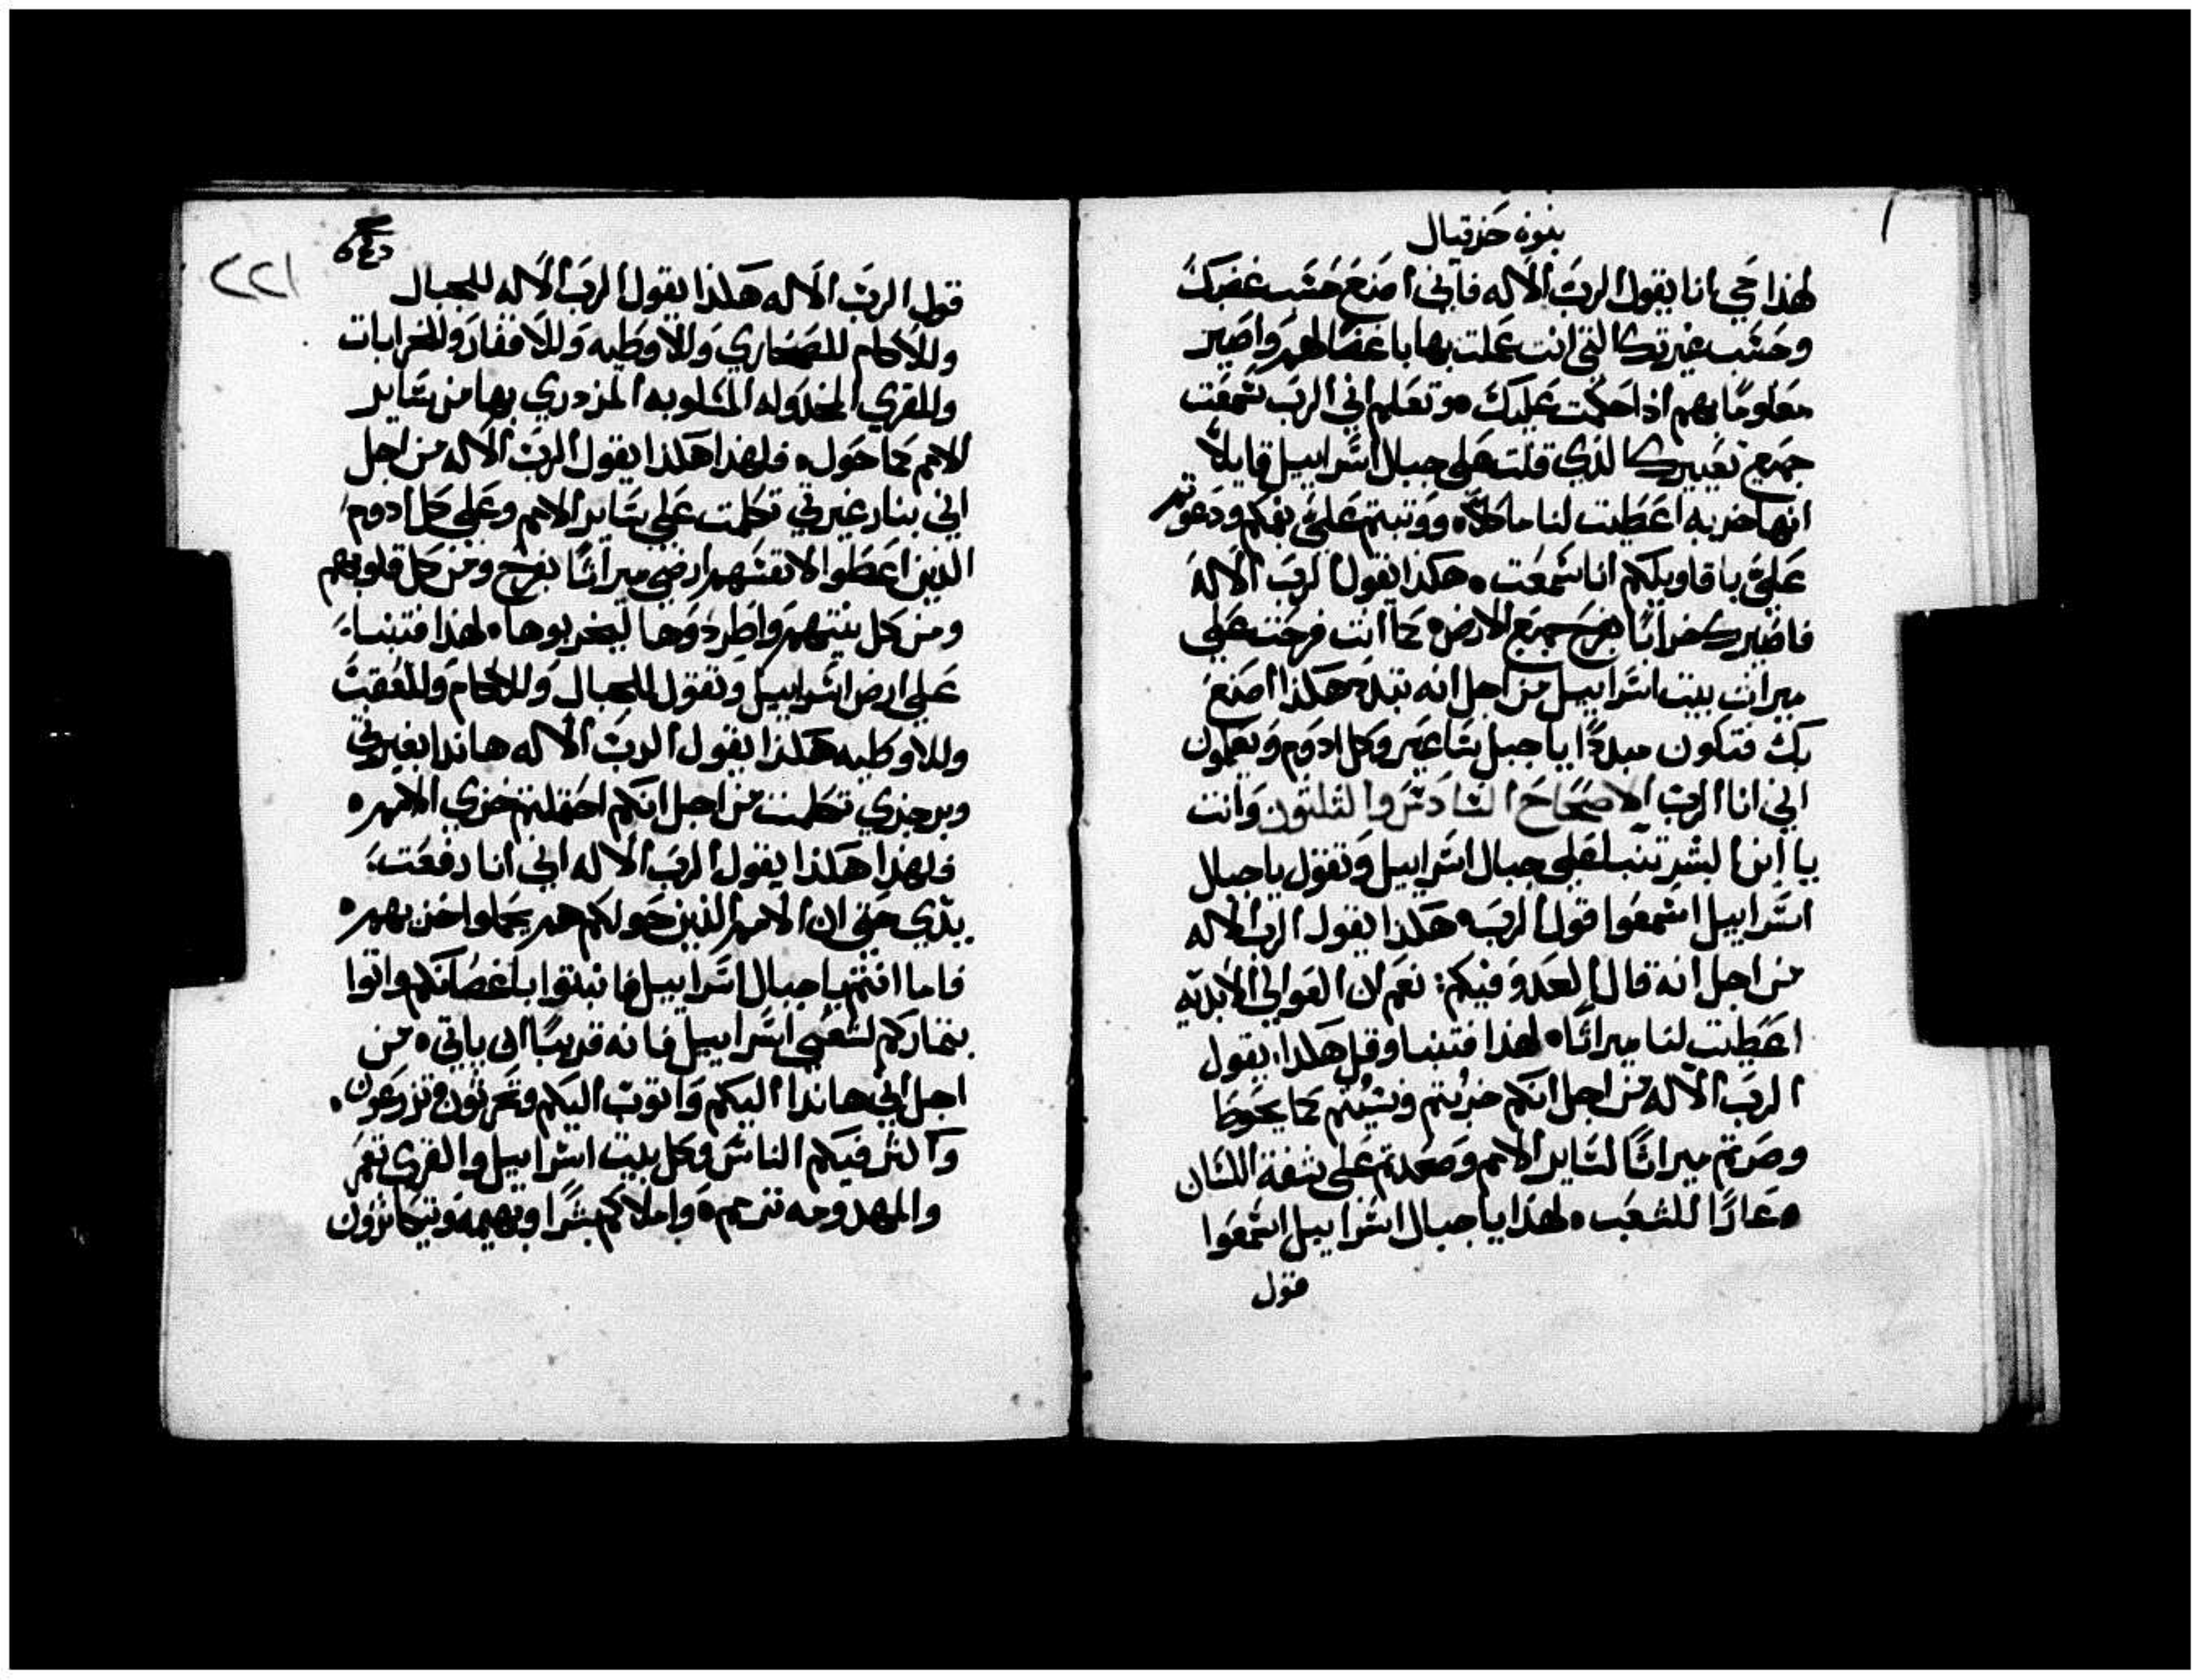 نبوة حزقيال
لهذا حي انا يقول الرب الاله فاني اصنع حسب غضبك
وحسب غيرتك التي انت عملت بها باغضا لهم واصير
معلوما بهم اذا حكمت عليك ه وتعلم اني الرب سمعت
جميع تعييرك الذي قلت على جبال اسراييل قايلا
انها خربه اعطيت لنا ماكلا ه ووثبتم علي بفمكم ودعوتم
علي باقاويلكم انا سمعت ه هكذا يقول الرب الاله
فاصيرك خرابا بفرح جميع الارض ه كما انت فرحت على
ميراث بيت اسراييل من اجل انه تبدد هكذا اصنع
بك فتكون مبددا يا جبل ساعير وكل ادوم ويعلمون
اني انا الرب الاصحاح السادس والثلثون وانت
يا ابن البشر تنبا على جبال اسراييل وتقول يا جبال
اسراييل اسمعوا قول الرب ه هكذا يقول الرب الاله
من اجل انه قال العدو فيكم: نعم ان العوالي الابديه
اعطيت لنا ميراثا ه لهذا فتنبا وقل هكذا يقول
الرب الاله من اجل انكم خربتم ونسيتم كما يحوط
وصرتم ميراثا لساير الامم وصعدتم على شفة اللسان
وعارا للشعب ه لهذا يا جبال اسراييل اسمعوا
قول
٢٢١
قول الرب الاله هكذا يقول الرب الاله للجبال
وللاكام للصحاري وللاوطيه وللاقفار وللخرابات
وللقري المخذوله المسلوبه المزدري بها من ساير
الامم كما حول ه فلهذا هكذا يقول الرب الاله من اجل
اني بنار غيرتي تكلمت على ساير الامم وعلى كل ادوم
الذين اعطوا لانفسهم ارضي ميراثا بفرح ومن كل قلوبهم
ومن كل نيتهم واطردوها ليخربوها ه لهذا فتنبا
على ارض اسراييل وتقول للجبال وللاكام وللعقبت
وللاوطيه هكذا يقول الرب الاله هانذا بغيرتي
وبرجزي تكلمت من اجل انكم احتملتم خزي الامم ه
فلهذا هكذا يقول الرب الاله اني انا رفعت
يدي حتى ان الامم الذين حولكم هم يحملوا خزيهم ه
فاما انتم يا جبال اسراييل فانبتوا باغصانكم واتوا
بثماركم لشعبي اسراييل فانه قريبا ان ياتي ه من
اجل اني هانذا اليكم واتوب اليكم وتحرثون وتزرعون
واكثر فيكم الناس وكل بيت اسراييل والقرى تعمر
والمهدومه تترمم ه واملاكم بشرا وبهيمه ويتكاثرون